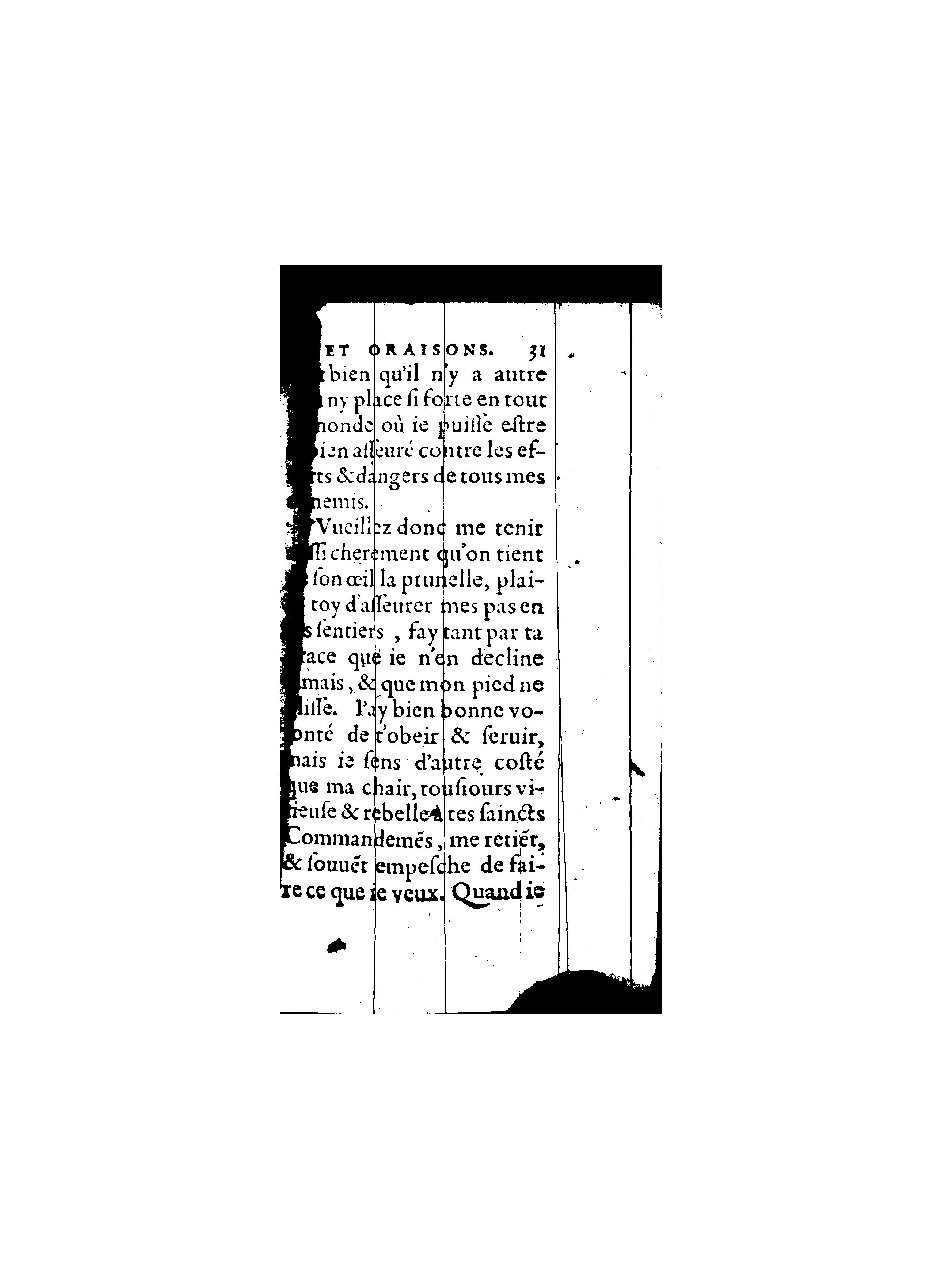 ET ORAISONS. 31
bien qu'il n'y a autre
ny place ſi forte en tout
où ie puiſſe eſtre
aſſeuré contre les ef-
& dangers de tous mes
Vueillez donc me tenir
cherement qu'on tient
ſon œil la prunelle, plai-
toy d'aſſeurer mes pas en
ſentiers , fay tant par ta
que ie n'en decline
, & que mon pied ne
I'ay bien bonne vo-
onté de t'obeir & ſeruir,
mais ie ſens d'autre coſté
que ma chair, touſiours vi-
tieuſe & rebelle à tes ſaincts
Commandemēs, me retiēt,
& ſouuēt empeſche de fai-
re ce que ie veux. Quand ie